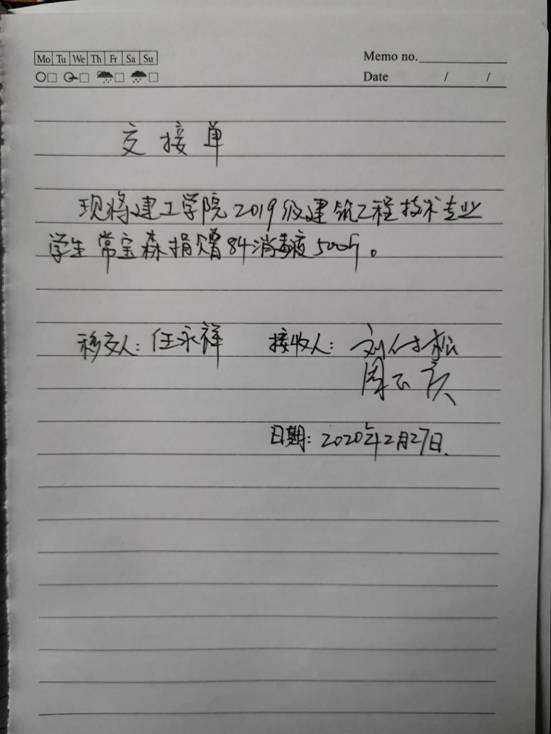 Mo Tu We Th Fr Sa Su
Memo no.
Date / /
交接单
现将建工学院2019级建筑工程技术专业
学生常宝森捐赠84消毒液500斤。
移交人：任永祥 接收人：刘
周
日期：2020年2月27日.